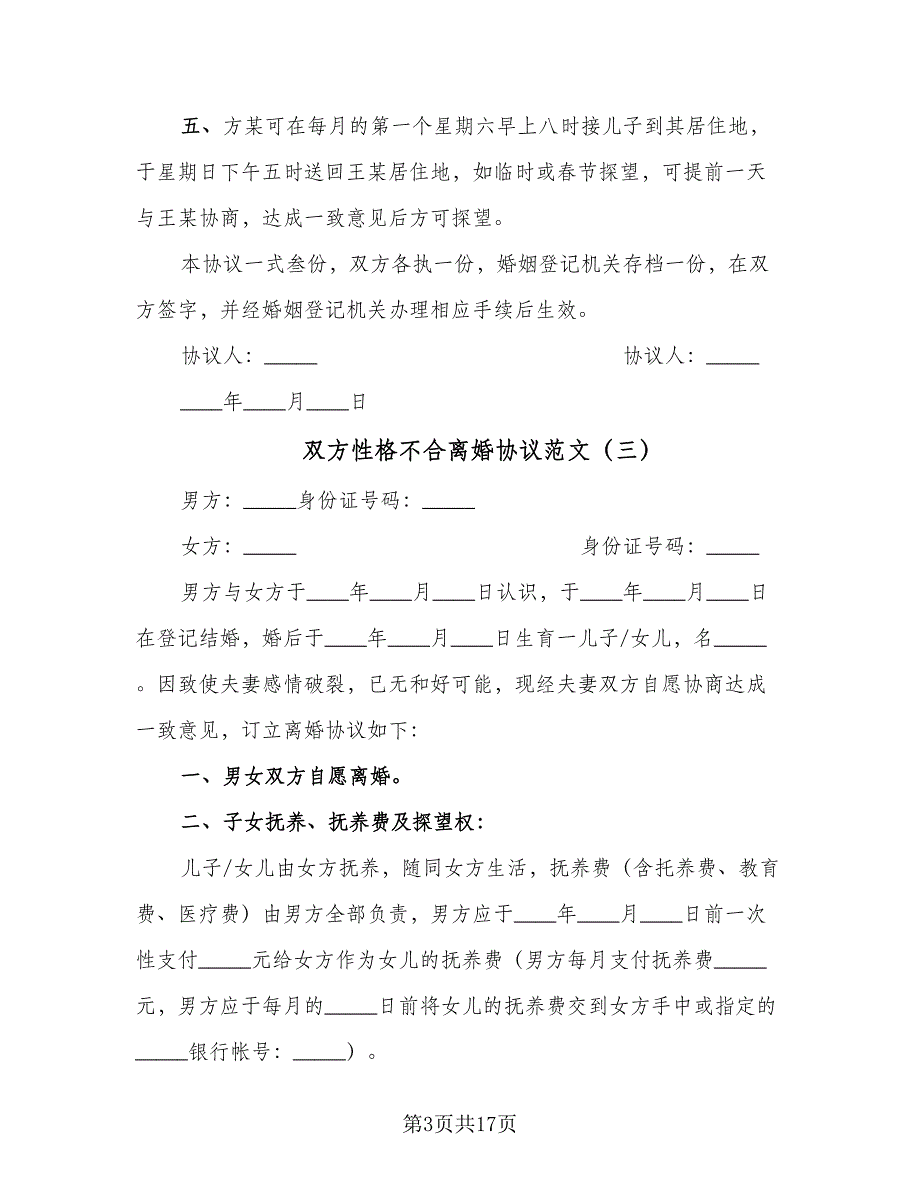 五、方某可在每月的第一个星期六早上八时接儿子到其居住地，
于星期日下午五时送回王某居住地，如临时或春节探望，可提前一天
与王某协商，达成一致意见后方可探望。
本协议一式叁份，双方各执一份，婚姻登记机关存档一份，在双
方签字，并经婚姻登记机关办理相应手续后生效。
协议人：_____ 协议人：_____
____年____月____日
双方性格不合离婚协议范文（三）
男方：_____身份证号码：_____
女方：_____ 身份证号码：_____
男方与女方于____年____月____日认识，于____年____月____日
在登记结婚，婚后于____年____月____日生育一儿子/女儿，名_____
。因致使夫妻感情破裂，已无和好可能，现经夫妻双方自愿协商达成
一致意见，订立离婚协议如下：
一、男女双方自愿离婚。
二、子女抚养、抚养费及探望权：
儿子/女儿由女方抚养，随同女方生活，抚养费（含托养费、教育
费、医疗费）由男方全部负责，男方应于____年____月____日前一次
性支付_____元给女方作为女儿的抚养费（男方每月支付抚养费_____
元，男方应于每月的_____日前将女儿的抚养费交到女方手中或指定的
_____银行帐号：_____）。
第3页共17页